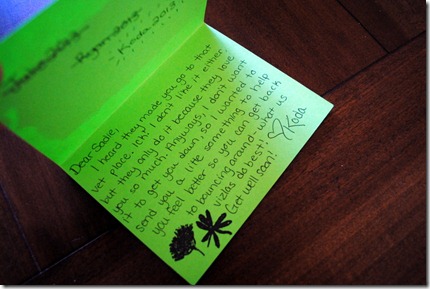 Koda 2013
Dear Sadie,
I heard they made you go to that
vet place. Ick! I don't like it either
but they only do it because they love
you so much. Anyways, I don't want
it to get you down, so I wanted to
send you a little something to help
you feel better so you can get back
to bouncing around... what us
vizlas do best!
Get well soon!
Koda